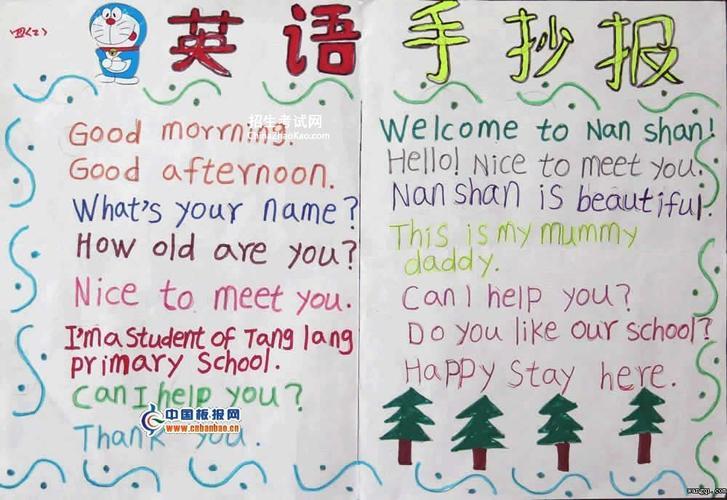 四(2)
英语手抄报
Good morrning.
Good afternoon.
What's your name?
How old are you?
Nice to meet you.
I'm a student of Tang lang
primary School.
Can I help you?
Thank you.
Welcome to Nan shan!
Hello! Nice to meet you.
Nan shan is beautiful.
This is my mummy
daddy.
Can I help you?
Do you like our school?
Happy Stay here.
招生考试网
ChinaZhaoKao.com
中国板报网
www.cnbanbao.cn